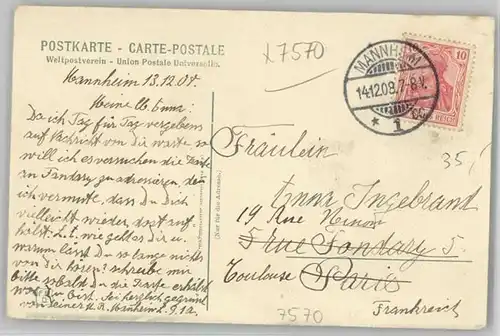 POSTKARTE - CARTE-POSTALE
Weltpostverein - Union Postale Universelle.
x7570
MANNHEIM
14.12.08.7-8V.
* 1
10
REICH
35,-
Mannheim 13.12.08.
Meine lb. Anna!
Da ich Tag für Tag vergebens
auf Nachricht von dir warte so
will ich es versuchen die Karte
an Fondary zu adressieren, da
ich vermute, dass du Dich
vielleicht wieder dort auf-
hälst. wie geht es dir u.
warum lässt du so lange nichts
von dir hören? schreibe mir
bitte sobald du die Karte erhälst
wo du bist. Sei herzlich gegrüsst
von Deiner
(Nur für die Adresse)
Fräulein
Anna Ingebrand
19 Rue
5 rue Fondary 5.
Toulouse Paris
Frankreich
7570